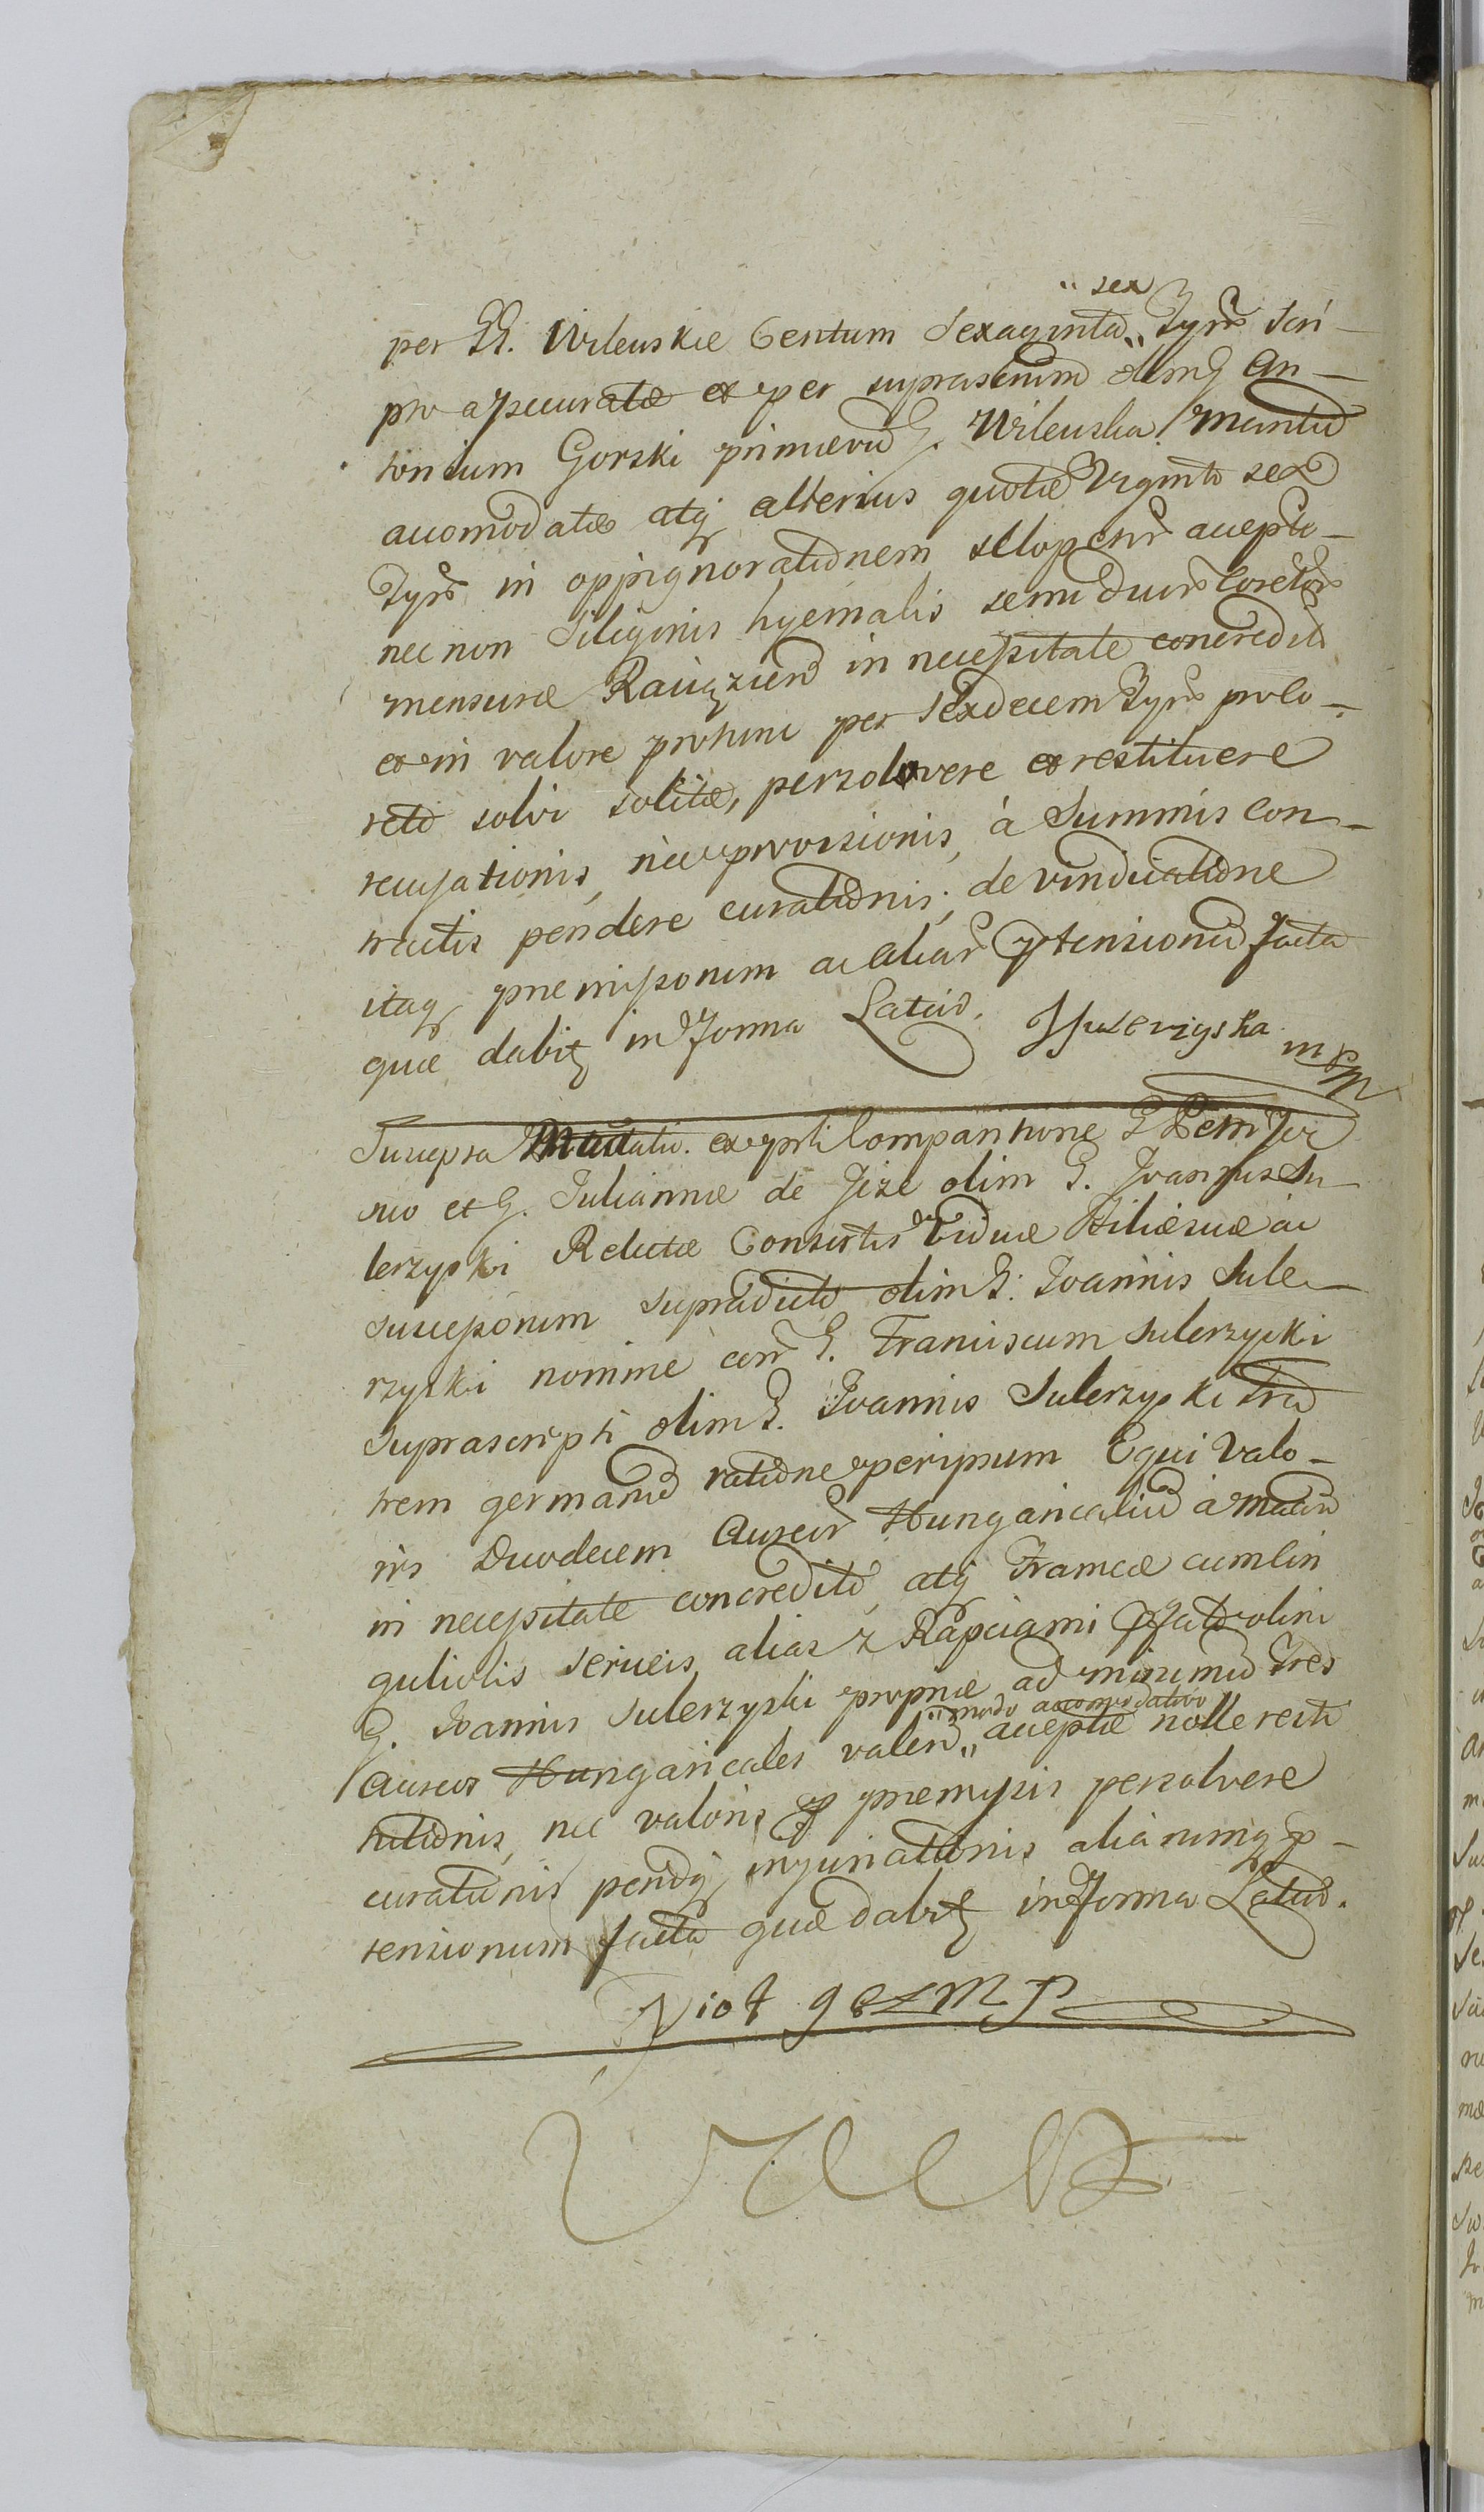 „ sex
per GG. Wilewskie Centum Sexaginta „ Tynf. Scri-
pto assecuratæ et per suprascriptum olim G. An-
tonium Gorski primævum G. Wilewska Maritum
accomodatæ atq alterius quotæ Viginti sex
Tynf. in oppignorationem sclopetor. accepto-
nec non Siliginis hyemalis semi duor. Coretor.
mensuræ Raciązien in necessitate concredit.
et in valore protunc per Sexdecem Tynf. pro Co-
reto solvi solitæ, persolvere et restituere
recusationis, nec provisionis, à Summis con-
tractis pendere curationis; de vindicatione
itaq præmissorum ac aliar. prætensionum facta
quæ dabit in Forma Latius. JSulerzyska
mp
Suscepta Mutatio. ex parti Comparitione
suo et G. Juliannæ de Jeze olim G. Joannis Su-
lerzyski Relictæ Consortis Viduæ Filiæ suæ ac
successorum supradicti olim G. Joannis Sule-
rzyski nomine con. G. Franciscum Sulerzyski
suprascripti olim G. Joannis Sulerzyski Fra-
trem germanum ratione per ipsum Equi Valo-
ris Duodecem Aureor. Hungaricalium
in necessitate concrediti, atq Frameæ cum Cin
guliolis sericeis, alias z Rapciami olim
G. Joannis Sulerzyski propriæ ad minimum Tres
„ modo accomodativo
Aureos Hungaricales valen „ acceptæ nolle resti
tutionis, nec valoris præmissis persolvere
curationis pendq injuriationis aliarumq p-
tensionum facta quæ dabit in Forma Latius.